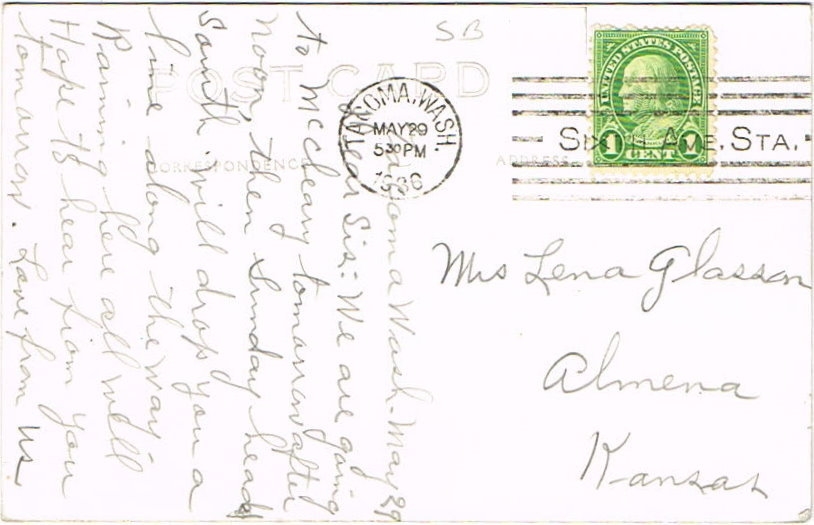 SB
POST CARD
CORRESPONDENCE
ADDRESS
TACOMA, WASH.
MAY 29
5 30 PM
SIXTH AVE. STA.
UNITED STATES POSTAGE
1 CENT 1
Mrs Lena Glasson
Almena
Kansas
Tacoma Wash - May 29
Dear Sis: We are going
to McCleary tomorrow after
noon, then Sunday head
South. Will drop you a
line along the way -
Raining here all well
Hope to hear from you
tomorrow. Love from us